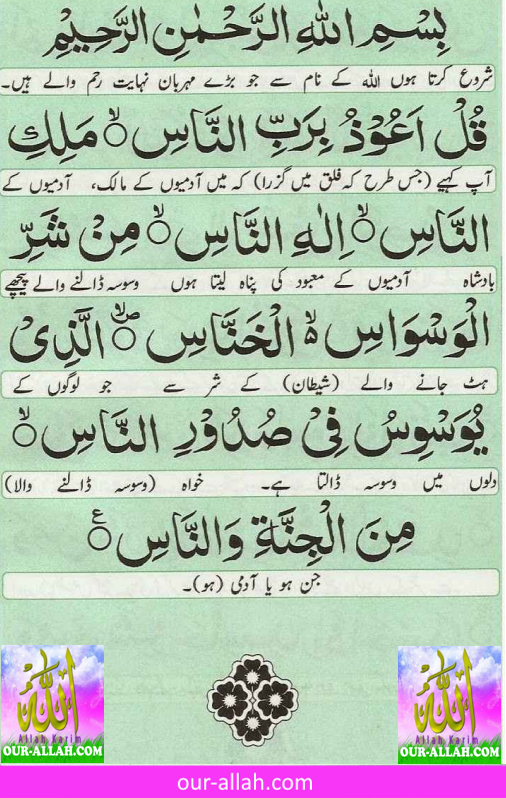 بِسْمِ اللهِ الرَّحْمٰنِ الرَّحِيْمِ
شروع کرتا ہوں اللہ کے نام سے جو بڑے مہربان نہایت رحم والے ہیں۔
قُلْ اَعُوْذُ بِرَبِّ النَّاسِ ۙ مَلِكِ
آپ کہیے (جس طرح کہ فلق میں گزرا) کہ میں آدمیوں کے مالک، آدمیوں کے
النَّاسِ ۙ اِلٰهِ النَّاسِ ۙ مِنْ شَرِّ
بادشاہ آدمیوں کے معبود کی پناہ لیتا ہوں وسوسہ ڈالنے والے پیچھے
الْوَسْوَاسِ ۙ الْخَنَّاسِ ۙ الَّذِىْ
ہٹ جانے والے (شیطان) کے شر سے جو لوگوں کے
يُوَسْوِسُ فِىْ صُدُوْرِ النَّاسِ ۙ
دلوں میں وسوسہ ڈالتا ہے۔ خواہ (وسوسہ ڈالنے والا)
مِنَ الْجِنَّةِ وَالنَّاسِ ۧ
جن ہو یا آدمی (ہو)۔
الله
Allah Karim
OUR-ALLAH.COM
الله
Allah Karim
OUR-ALLAH.COM
our-allah.com